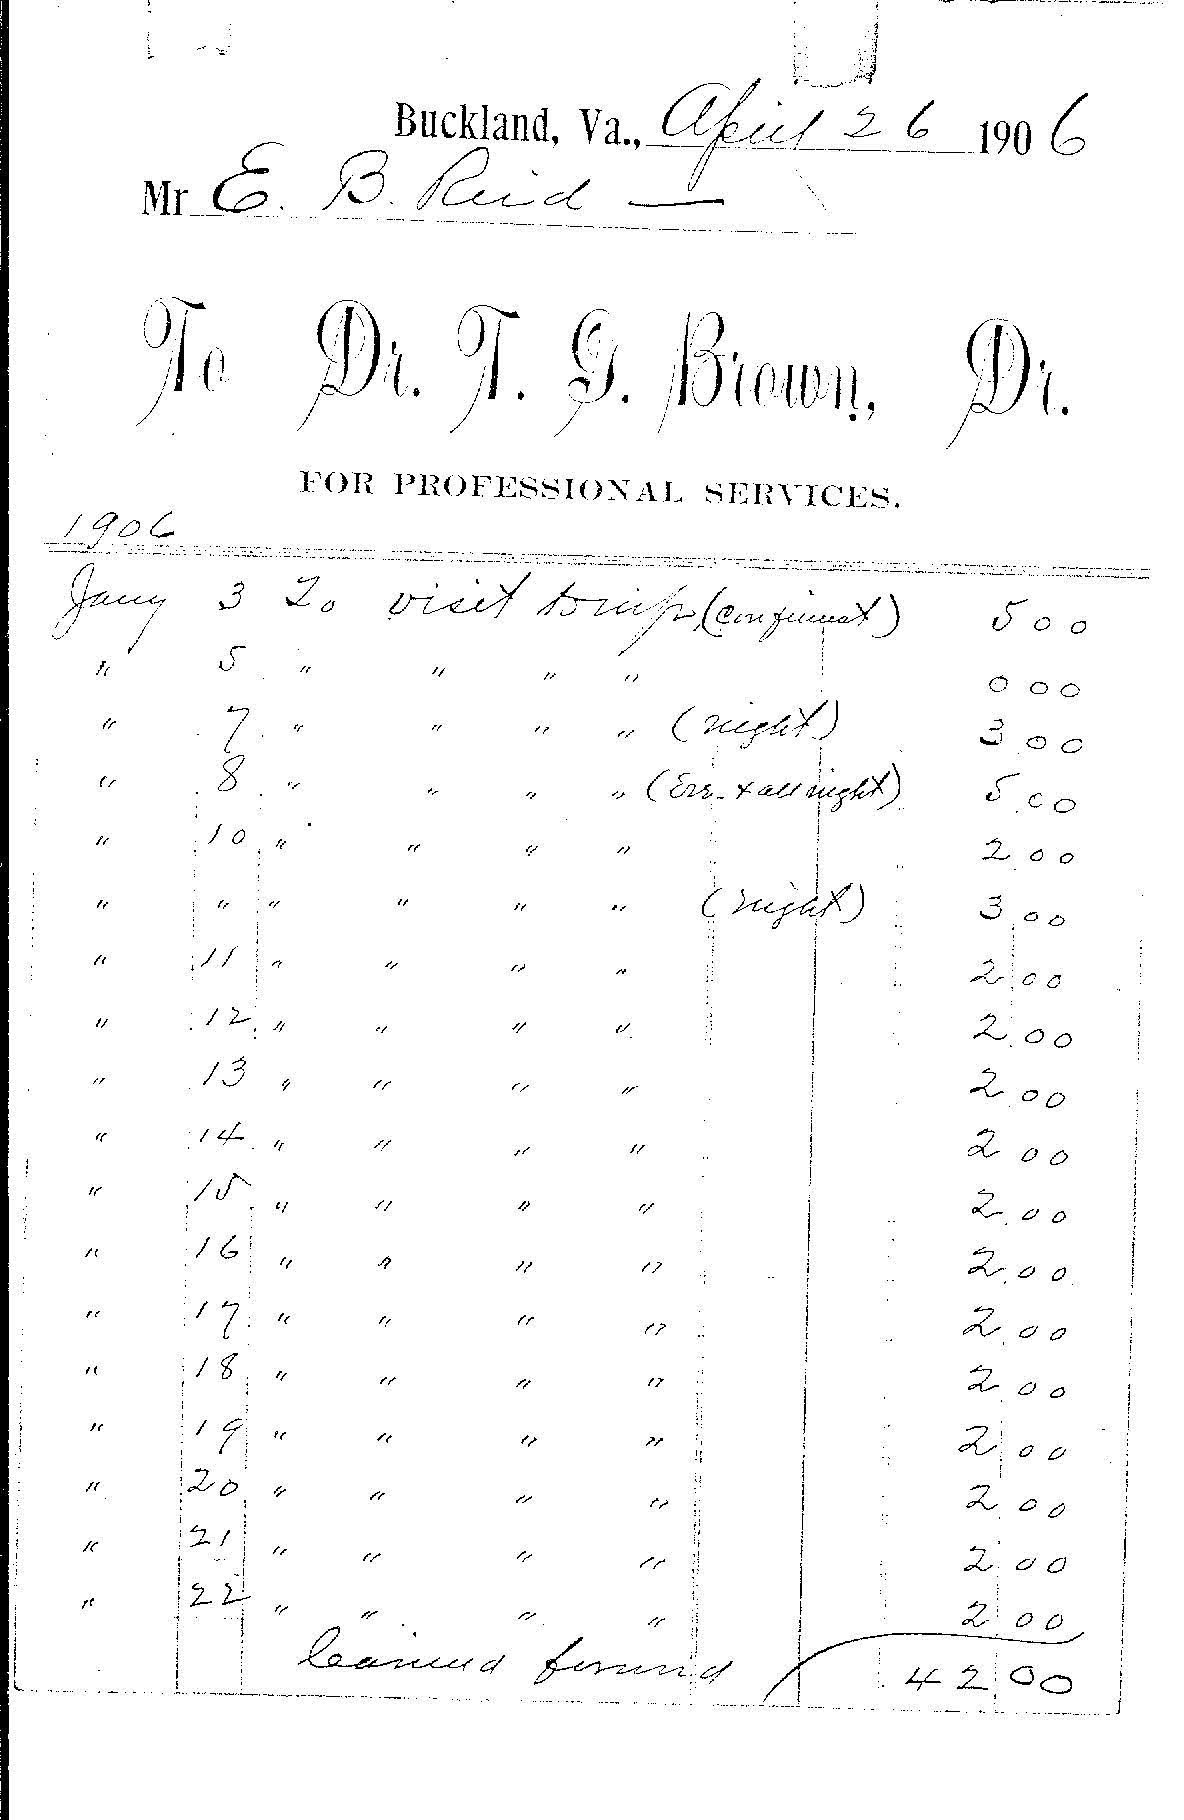 Buckland, Va., April 26 1906
Mr E. B. Reid —
To Dr. T. G. Brown, Dr.
FOR PROFESSIONAL SERVICES.
1906
Jany 3 To visit to wife (confinement) 5 00
" 5 " " " " 0 00
" 7 " " " " (night) 3 00
" 8 " " " " ( & all night) 5 00
" 10 " " " " 2 00
" " " " " " (night) 3 00
" 11 " " " " 2 00
" 12 " " " " 2 00
" 13 " " " " 2 00
" 14 " " " " 2 00
" 15 " " " " 2 00
" 16 " " " " 2 00
" 17 " " " " 2 00
" 18 " " " " 2 00
" 19 " " " " 2 00
" 20 " " " " 2 00
" 21 " " " " 2 00
" 22 " " " " 2 00
Carried forward 42 00